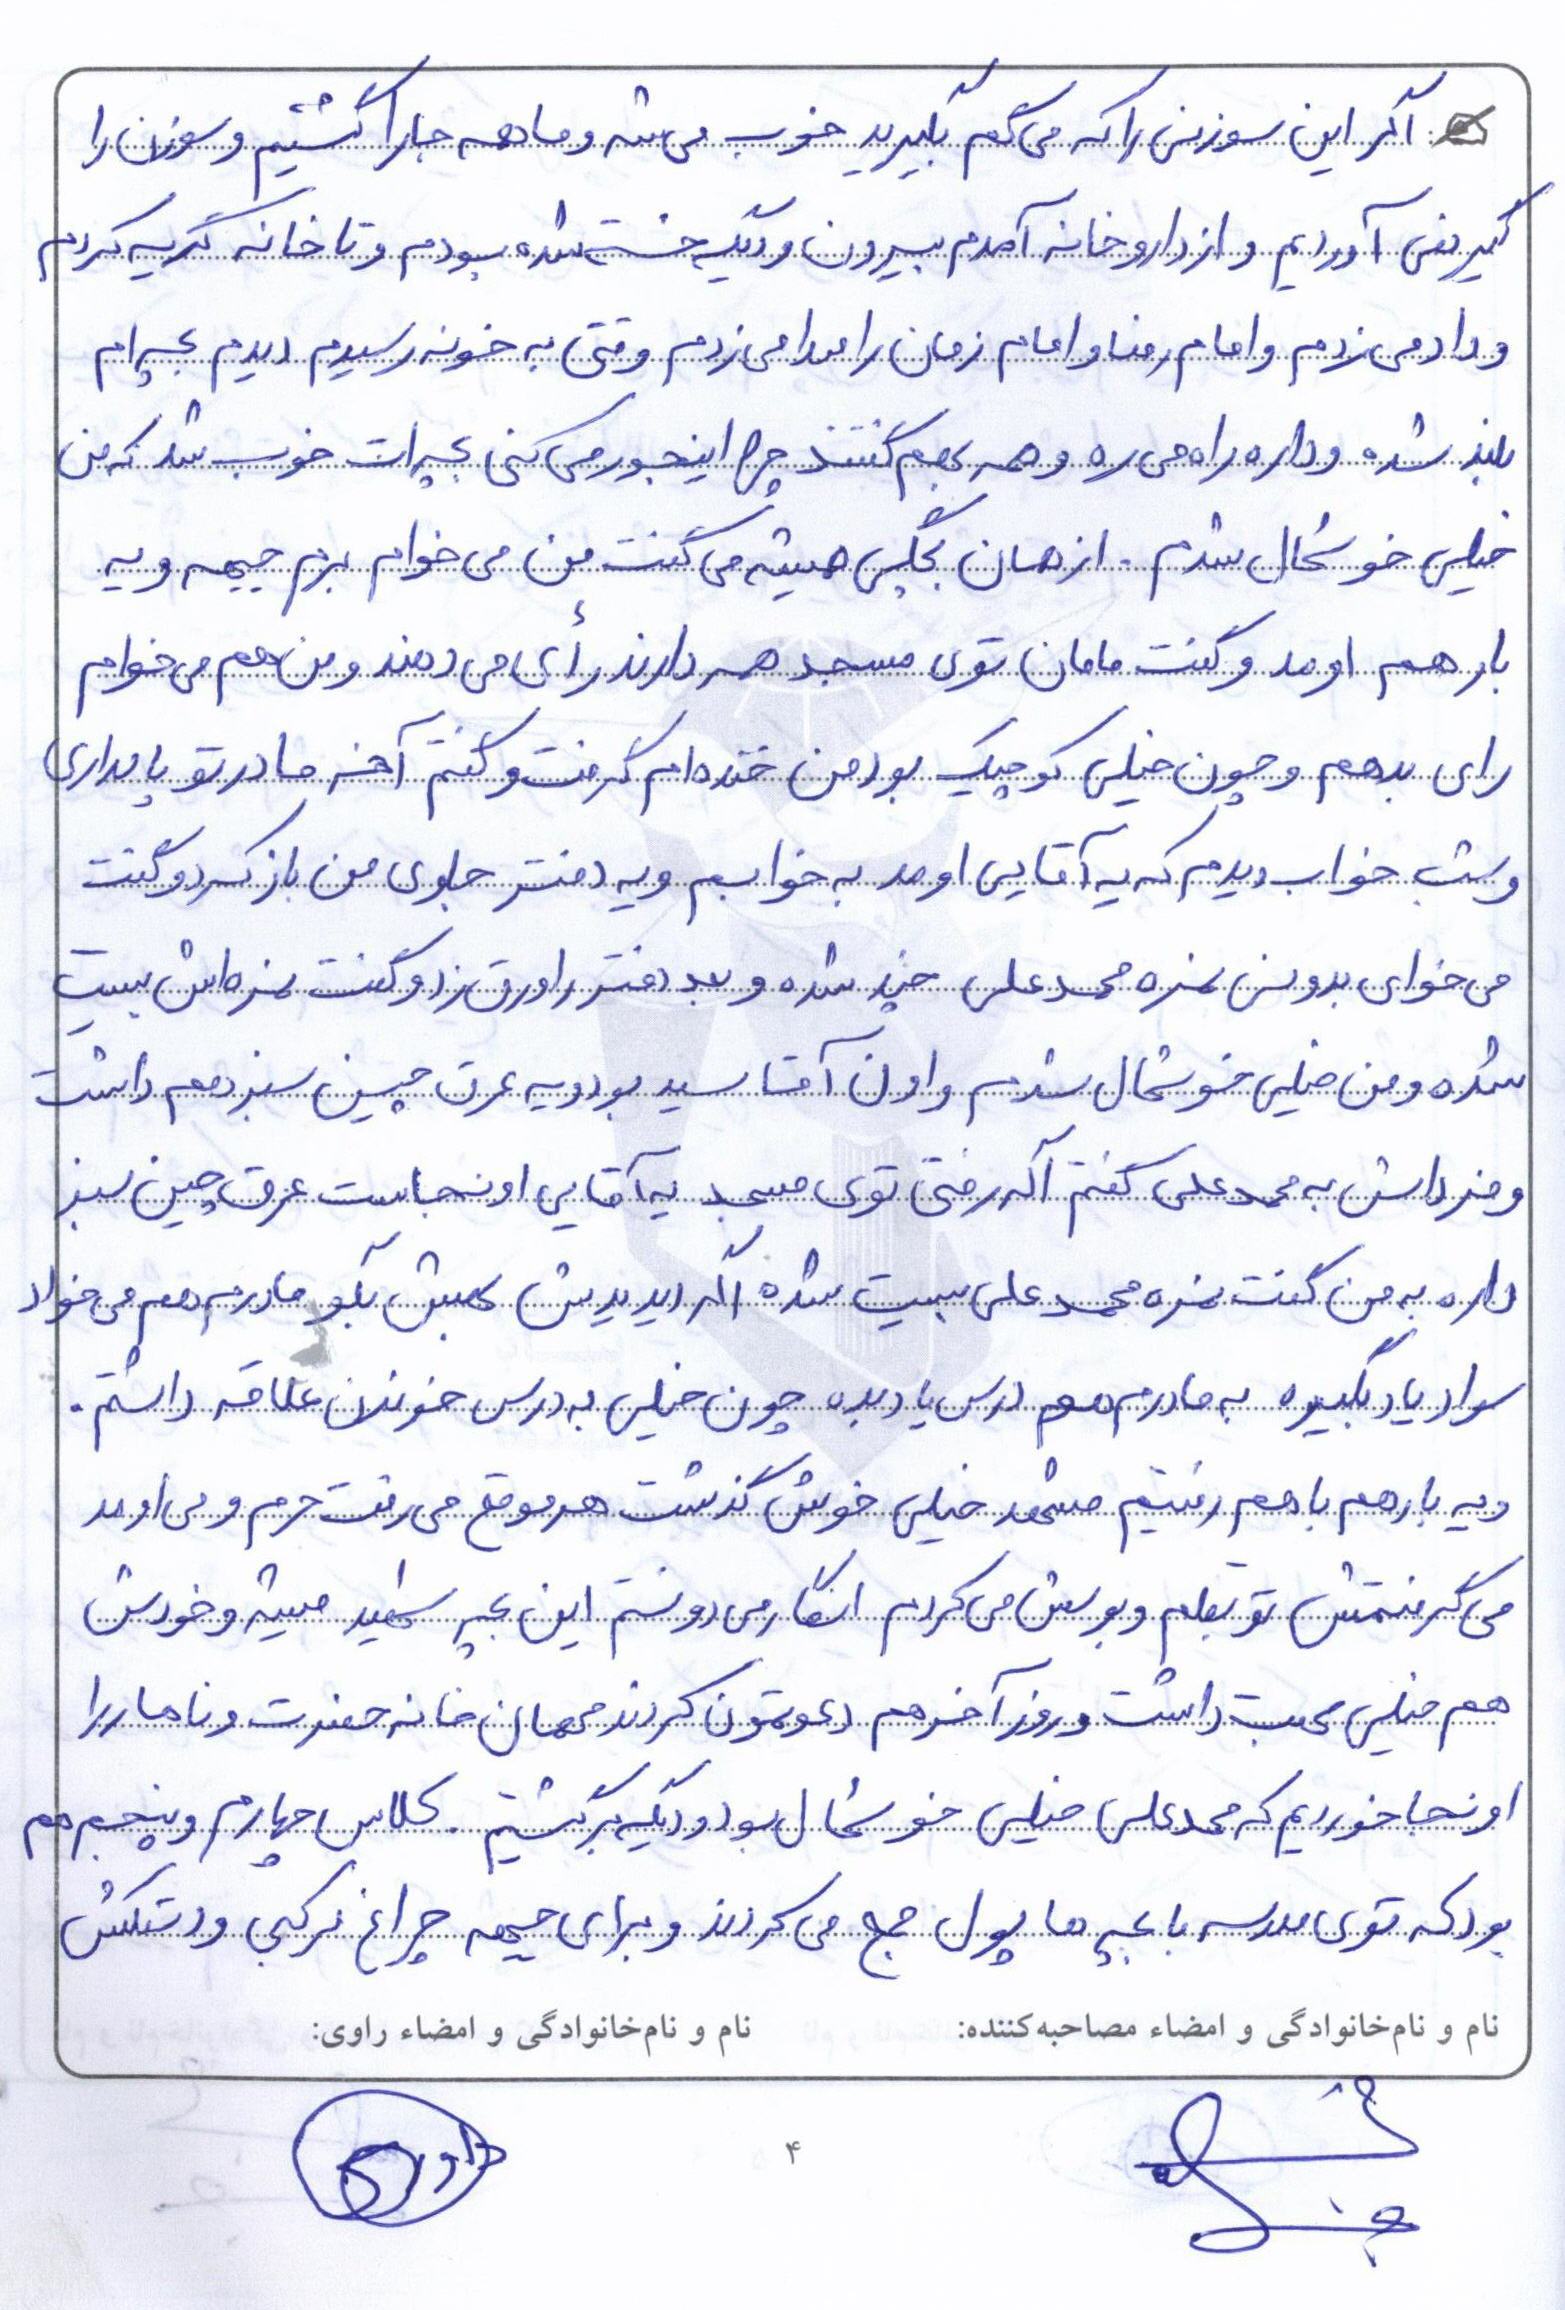 اگر این سوزنی را که می‌گم بگیرید خوب می‌شه و ما همه جا را گشتیم و سوزن را
گیر نمی آوردیم و از داروخانه آمدم بیرون و دیگه خسته شده بودم و تا خانه گریه کردم
و داد می‌زدم و امام رضا و امام زمان را صدا می‌زدم وقتی به خونه رسیدم دیدم بچه‌ام
بلند شده و داره راه می‌ره و همه بهم گفتند چرا اینجور می‌کنی بچه‌ات خوب شد که من
خیلی خوشحال شدم . از همان بچگی همیشه می‌گفت من می‌خوام برم جبهه و یه
بار هم اومد و گفت مامان توی مسجد همه دارند رأی می‌دهند و من هم می‌خوام
رای بدهم و چون خیلی کوچیک بود من خنده‌ام گرفت و گفتم آخه مادر تو پا نداری
و شب خواب دیدم که یه آقایی اومد به خوابم و یه دفتر جلوی من باز کرد و گفت
می‌خوای بدونی نمره محمدعلی چند شده و بعد دفتر را ورق زد و گفت نمره‌اش بیست
شده و من خیلی خوشحال شدم و اون آقا سید بود و یه عرق چین سبز هم داشت
و فرداش به محمدعلی گفتم اگه رفتی توی مسجد یه آقایی اونجاست عرق چین سبز
داره به من گفت نمره محمدعلی بیست شده اگر دیدیدیش بهش بگو مادرم هم می‌خواد
سواد یاد بگیره به مادرم هم درس یاد بده چون خیلی به درس خوندن علاقه داشتم .
و یه بار هم با هم رفتیم مشهد خیلی خوش گذشت هر موقع می‌رفت حرم و می‌اومد
می‌گرفتمش تو بغلم و بوسش می‌کردم انگار می‌دونستم این بچه شهید میشه و خودش
هم خیلی محبت داشت و روز آخر هم دعوتمون کردند مهمان خانه حضرت و ناهار را
اونجا خوردیم که محمدعلی خیلی خوشحال بود و دیگه برگشتیم . کلاس چهارم و پنجم هم
بود که توی مدرسه با بچه ها پول جمع می‌کردند و برای جبهه چراغ ترکیبی و دستکش
نام و نام‌خانوادگی و امضاء مصاحبه‌کننده: نام و نام‌خانوادگی و امضاء راوی:
۴